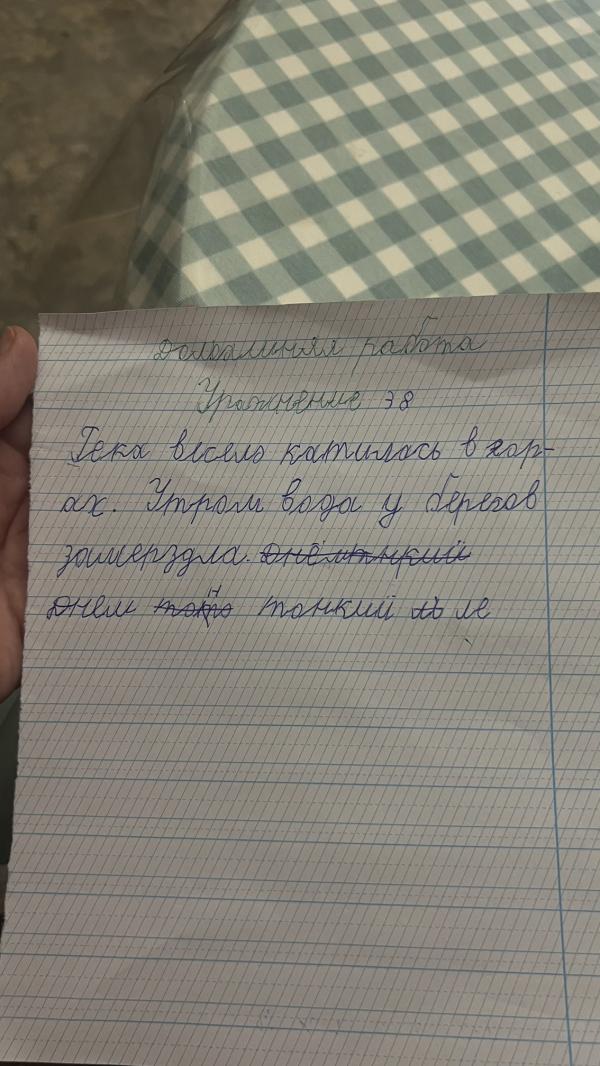 Домашняя работа
Упражнение 38
Река весело катилась в гор-
ах. Утром вода у берегов
замерздла. днём тнкий
Днем тонкий ле